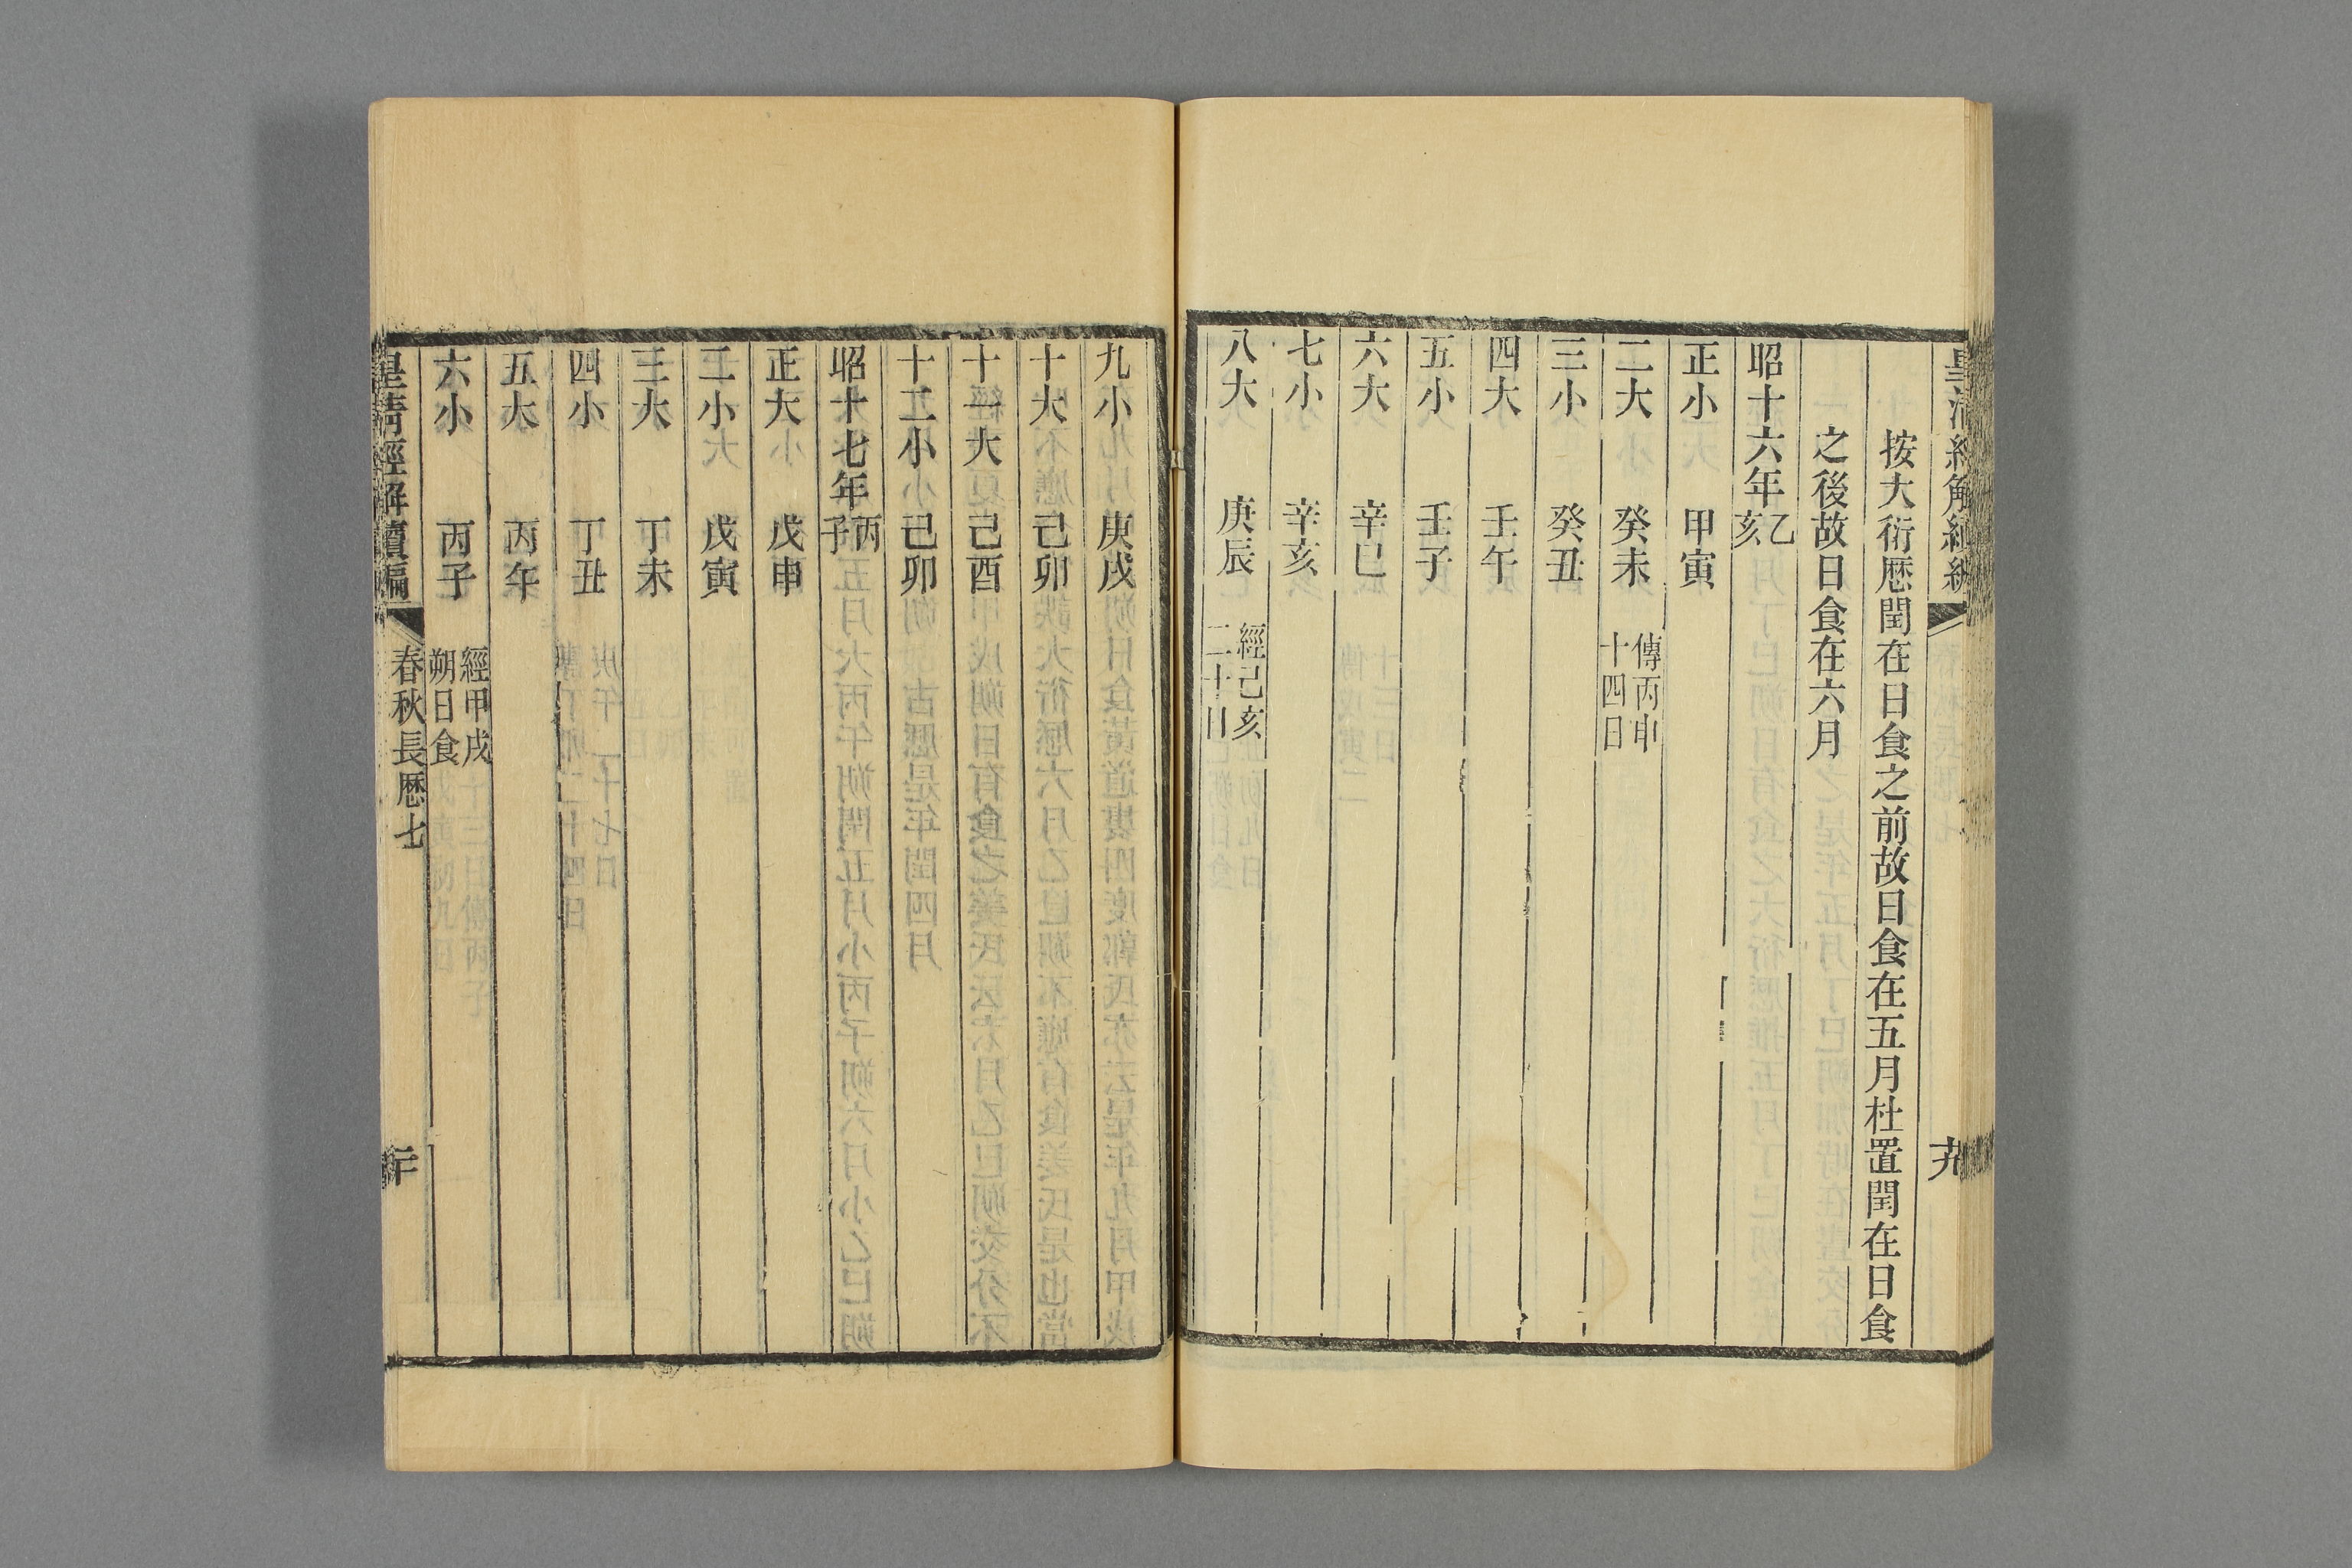 皇清經解續編
十九
按大衍厯閏在日食之前故日食在五月杜置閏在日食
之後故日食在六月
昭十六年乙亥
正小 甲寅
二大 癸未 傳丙申十四日
三小 癸丑
四大 壬午
五小 壬子
六大 辛巳
七小 辛亥
八大 庚辰 經己亥二十日
九小 庚戌
十大 己卯
十一大 己酉
十二小 己卯
昭十七年丙子
正大 戊申
二小 戊寅
三大 丁未
四小 丁丑
五大 丙午
六小 丙子 經甲戌朔日食
皇清經解續編
春秋長厯七
二十